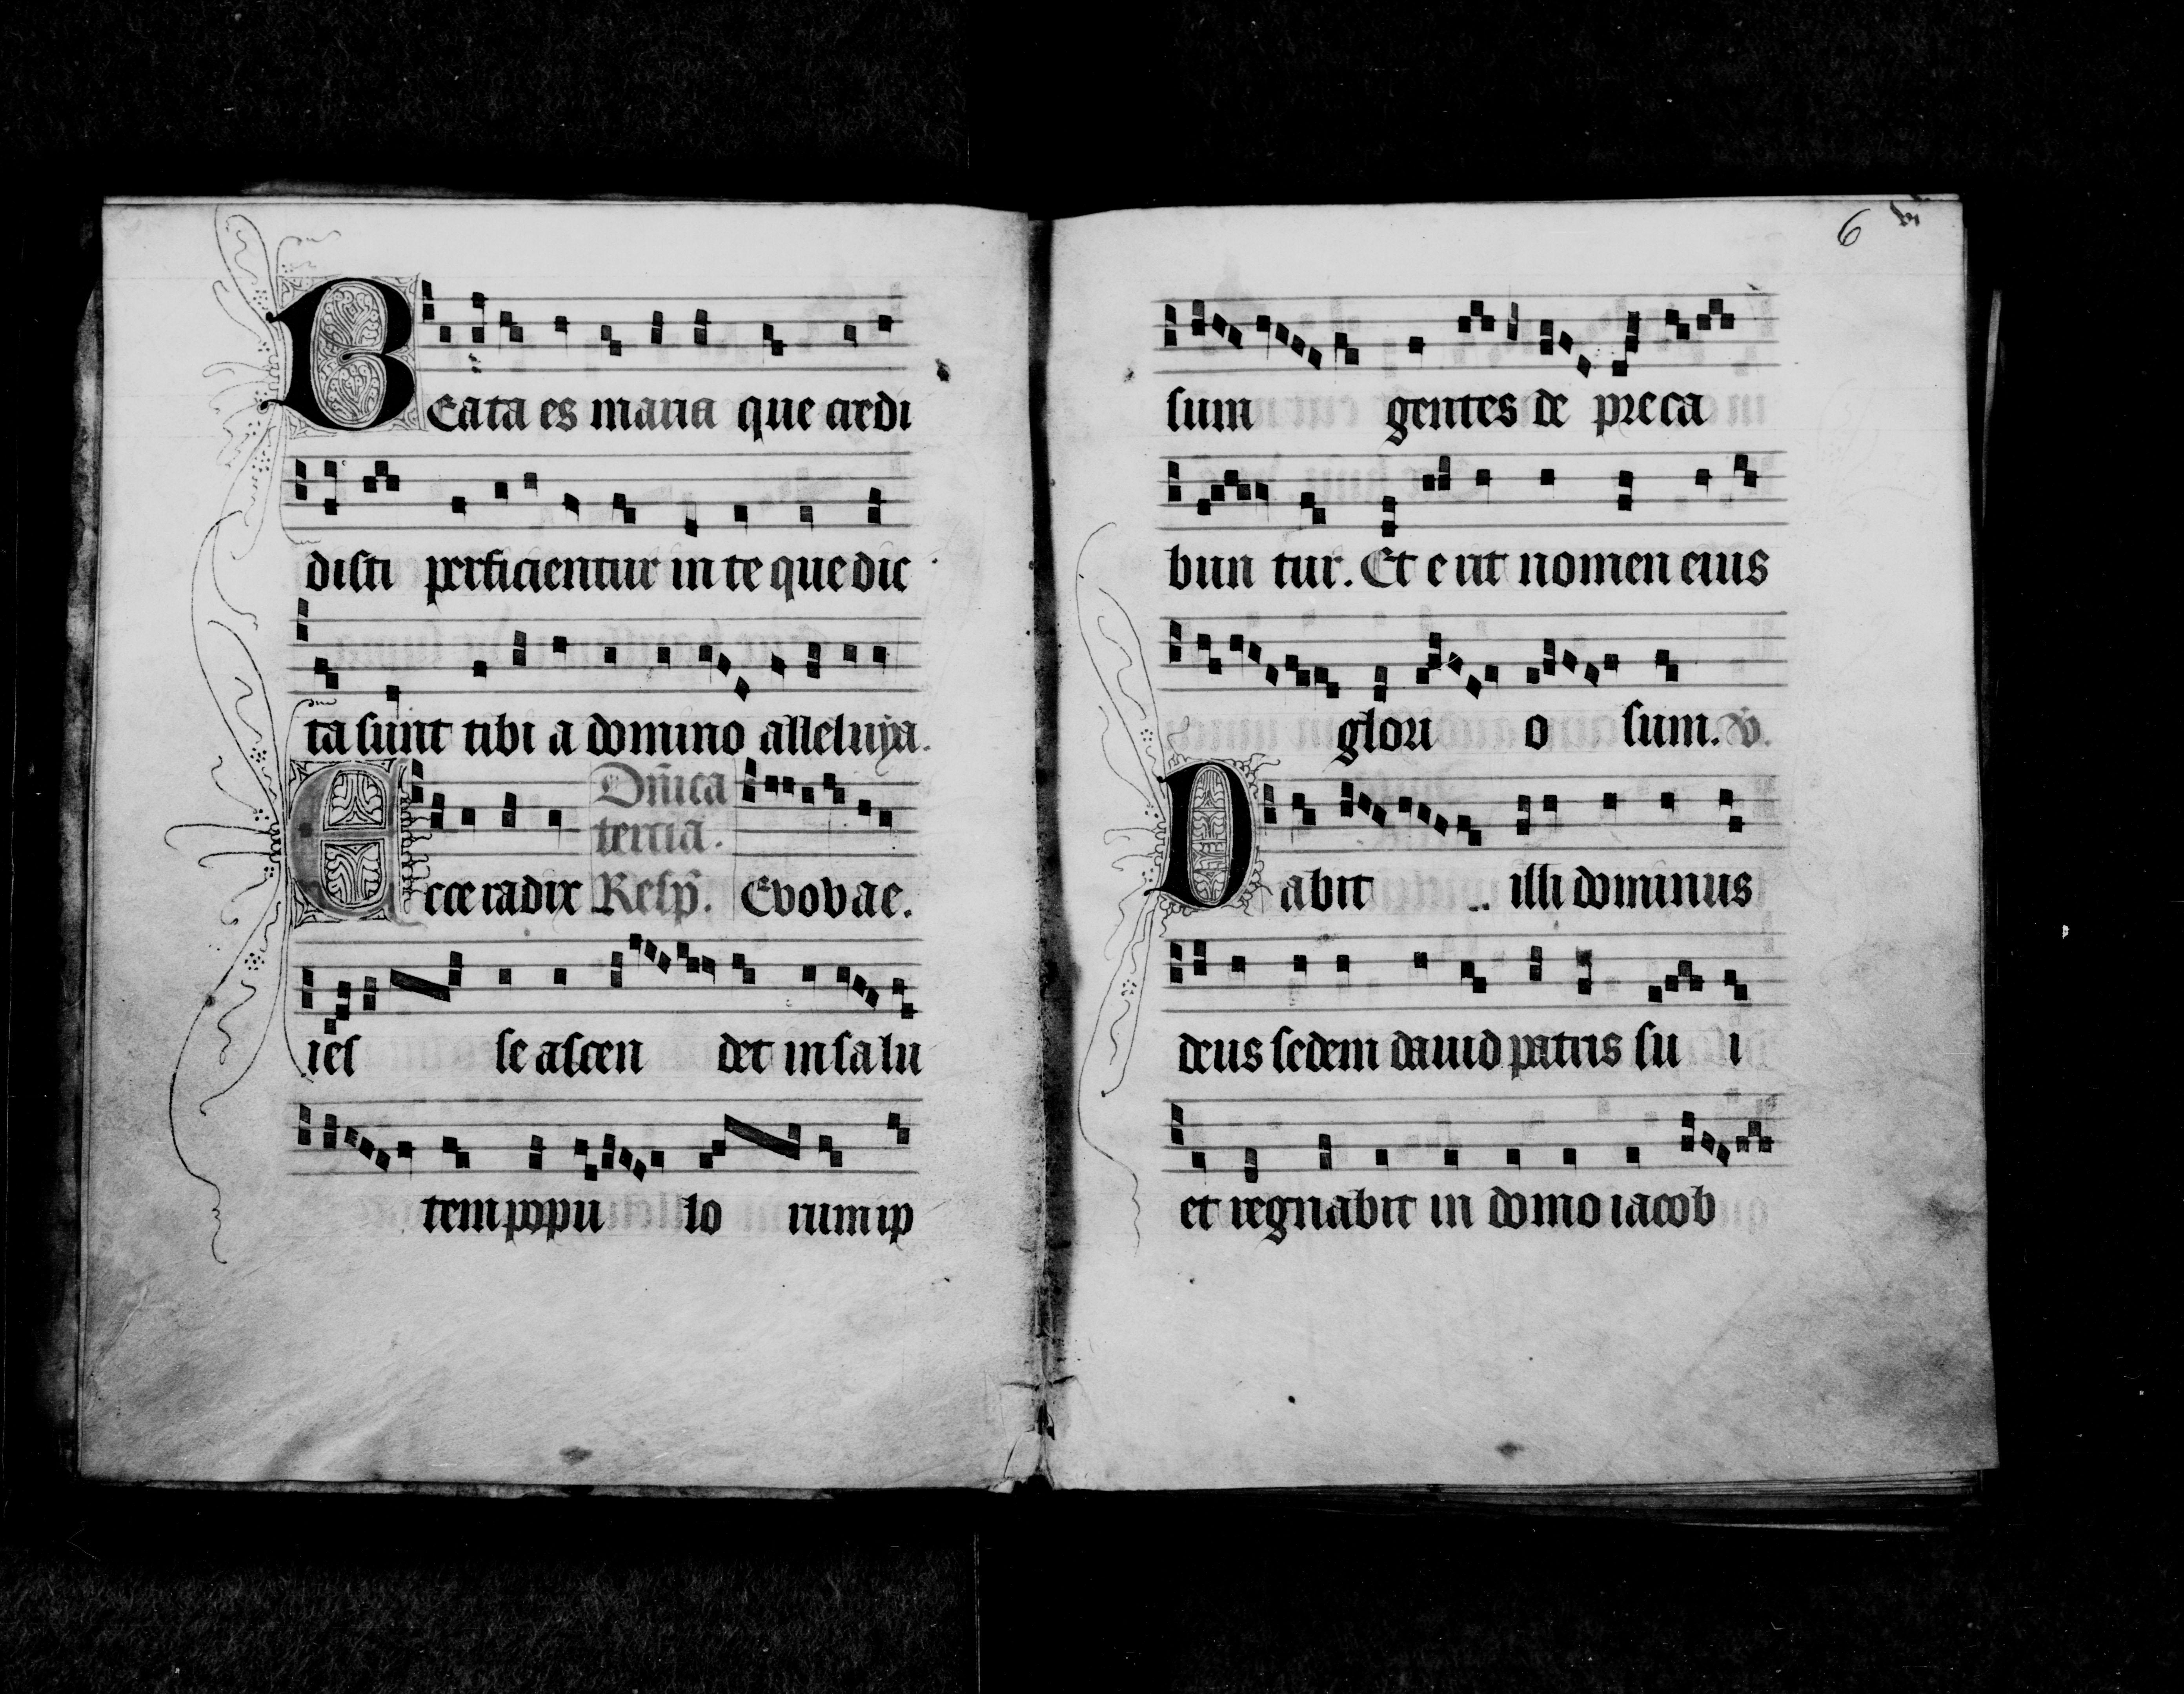 Beata es maria que credi
disti perficientur in te que dic
ta sunt tibi a domino alleluya.
Ecce radix Dñica tercia. Resp̃. Evovae.
ies se ascen det in salu
tem popu lo rum ip
6 vi
sum gentes de preca
bun tur. Et erit nomen eius
glori o sum. v.
Dabit illi dominus
deus sedem dauid patris su i
et regnabit in domo iacob